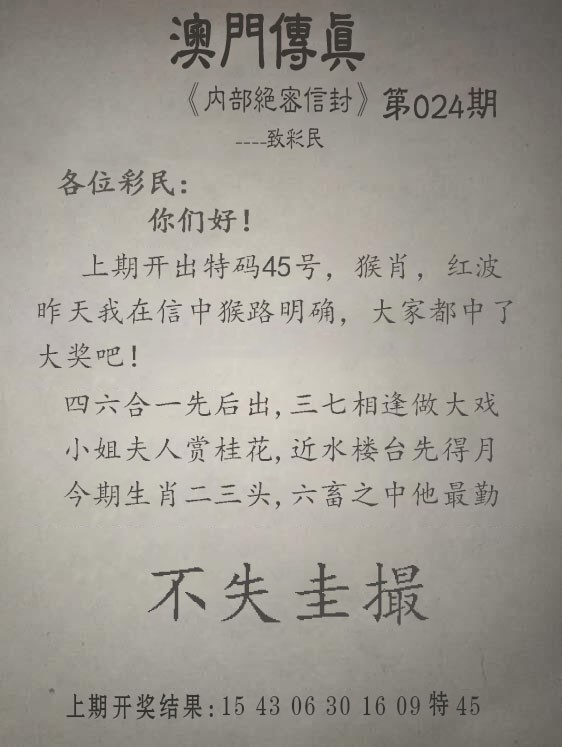 澳門傳真
《内部絕密信封》第024期
----致彩民
各位彩民：
你们好！
上期开出特码45号，猴肖，红波
昨天我在信中猴路明确，大家都中了
大奖吧！
四六合一先后出,三七相逢做大戏
小姐夫人赏桂花,近水楼台先得月
今期生肖二三头,六畜之中他最勤
不失圭撮
上期开奖结果:15 43 06 30 16 09 特 45